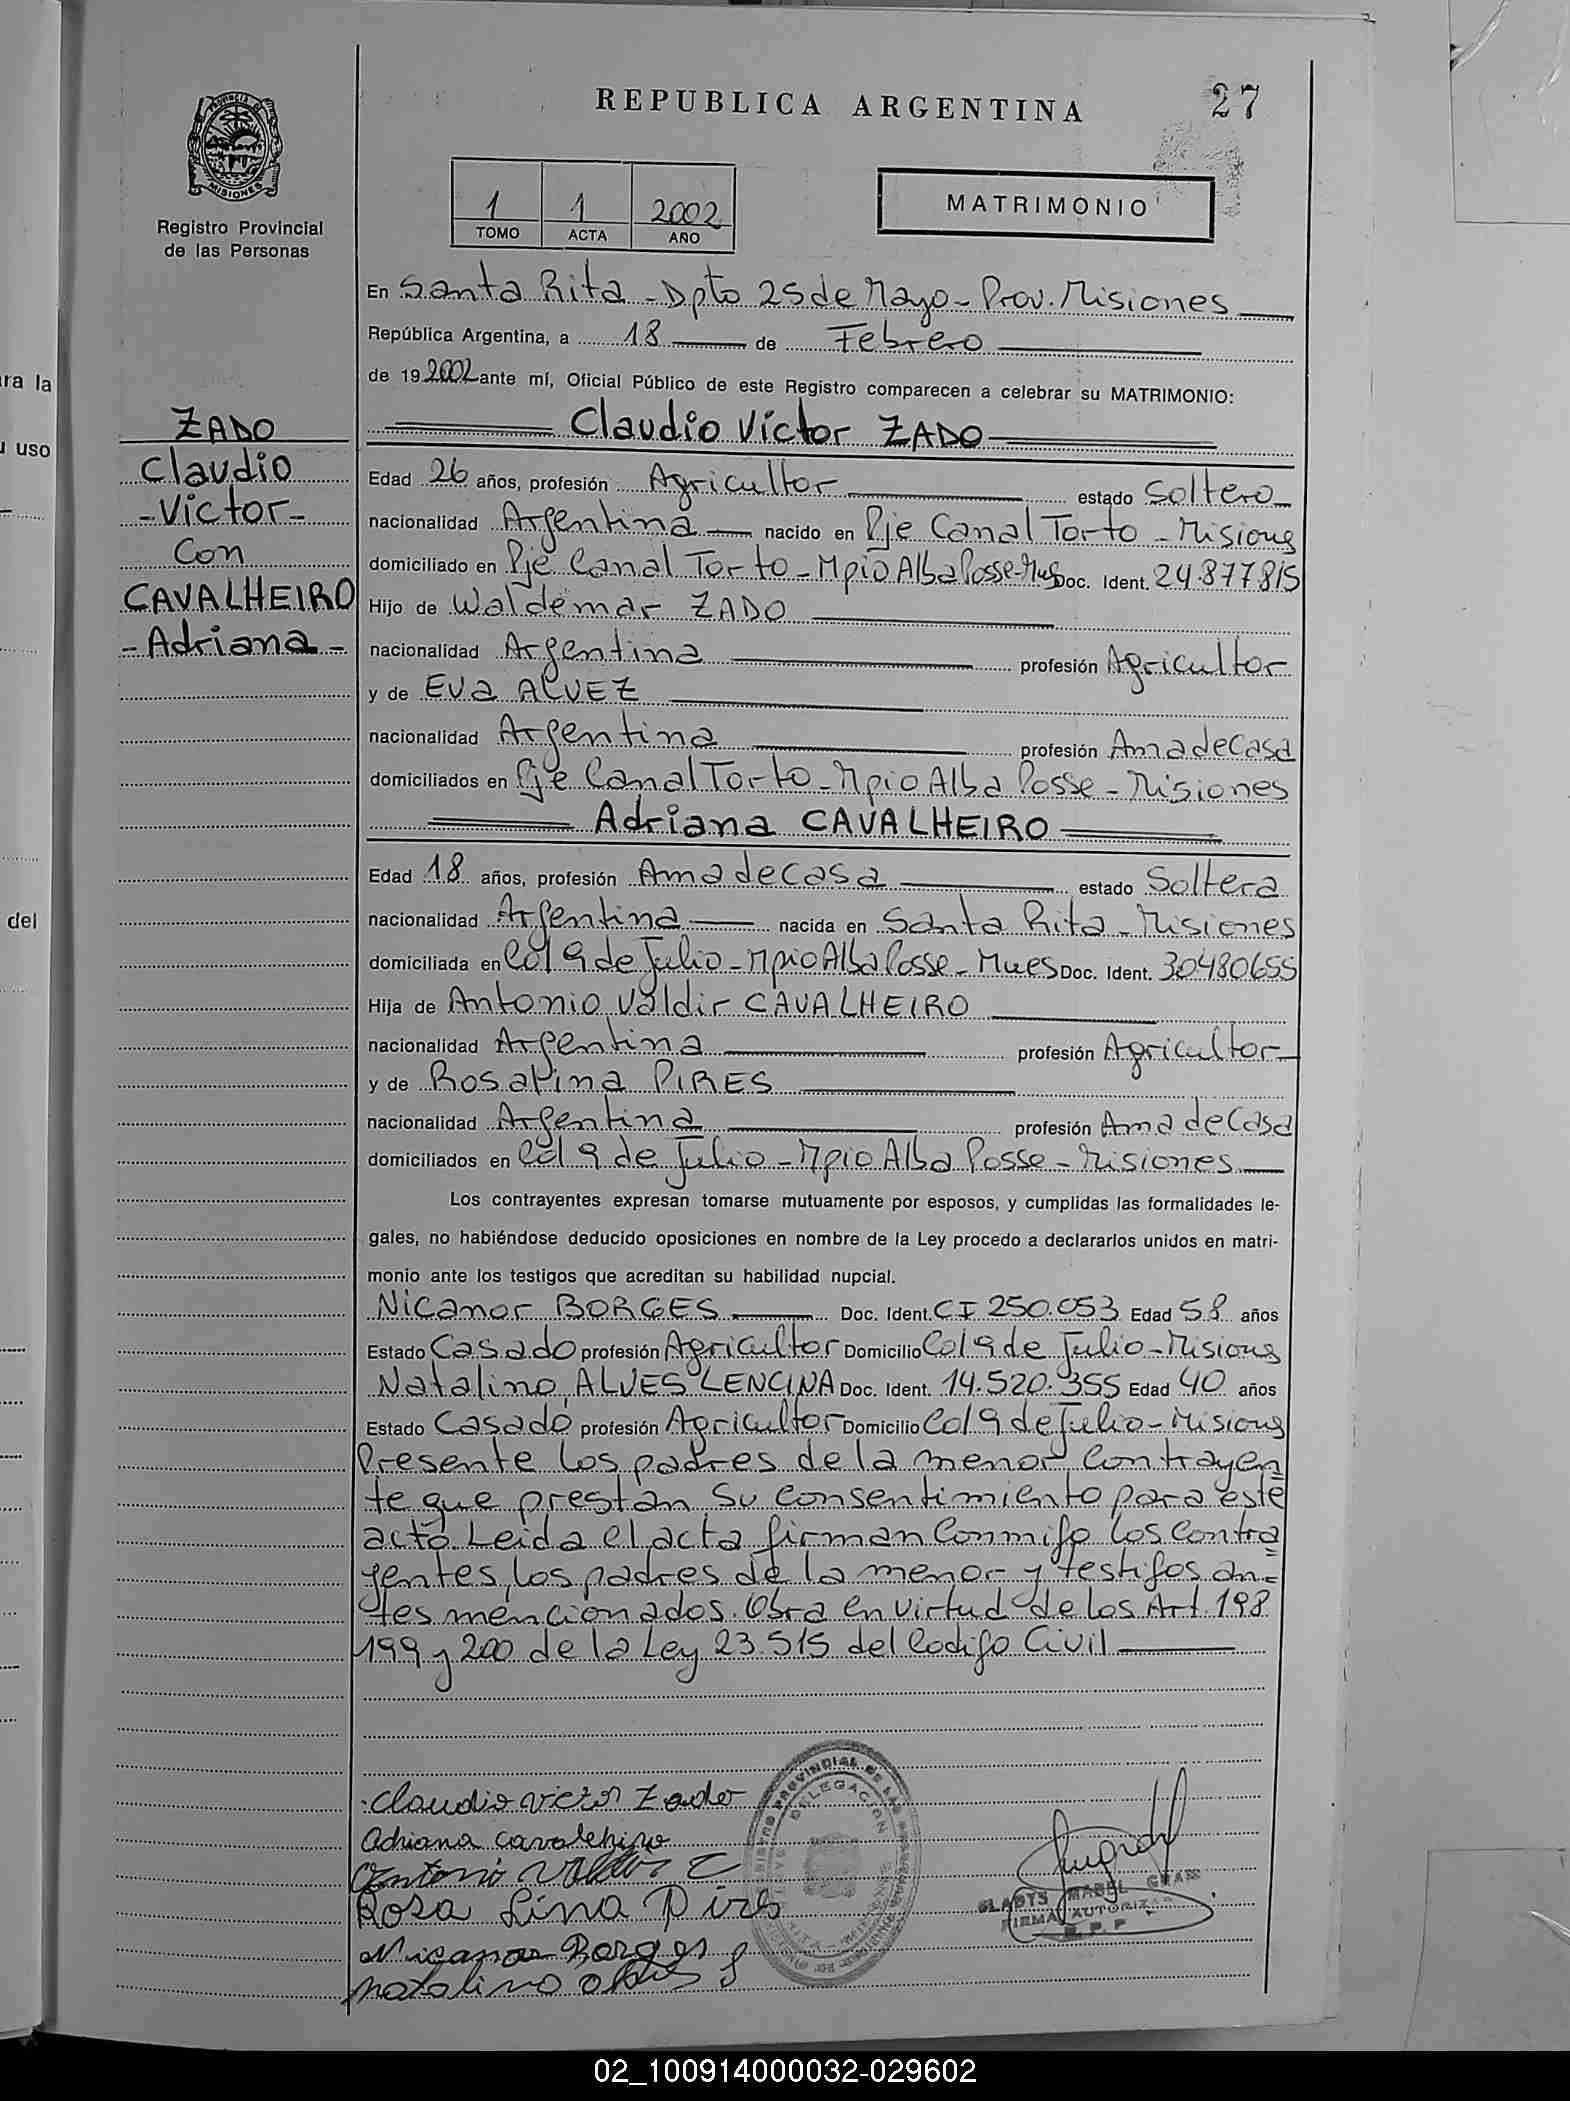 REPUBLICA ARGENTINA
27
PROVINCIA DE
MISIONES
Registro Provincial
de las Personas
1 1 2002
TOMO ACTA AÑO
MATRIMONIO
En Santa Rita - Dpto 25 de Mayo - Prov. Misiones
República Argentina, a 18 de Febrero
de 19 2002 ante mí, Oficial Público de este Registro comparecen a celebrar su MATRIMONIO:
ZADO
Claudio
- Victor -
Con
CAVALHEIRO
- Adriana -
Claudio Victor ZADO
Edad 26 años, profesión Agricultor estado Soltero
nacionalidad Argentina nacido en Pje Canal Torto - Misiones
domiciliado en Pje Canal Torto - Mpio Alba Posse - Mnes Doc. Ident. 24.877815
Hijo de Waldemar ZADO
nacionalidad Argentina profesión Agricultor
y de Eva ALVEZ
nacionalidad Argentina profesión Ama de Casa
domiciliados en Pje Canal Torto - Mpio Alba Posse - Misiones
Adriana CAVALHEIRO
Edad 18 años, profesión Ama de Casa estado Soltera
nacionalidad Argentina nacida en Santa Rita - Misiones
domiciliada en Col 9 de Julio - Mpio Alba Posse - Mnes Doc. Ident. 30480655
Hija de Antonio Valdir CAVALHEIRO
nacionalidad Argentina profesión Agricultor
y de Rosalina PIRES
nacionalidad Argentina profesión Ama de Casa
domiciliados en Col 9 de Julio - Mpio Alba Posse - Misiones
Los contrayentes expresan tomarse mutuamente por esposos, y cumplidas las formalidades le-
gales, no habiéndose deducido oposiciones en nombre de la Ley procedo a declararlos unidos en matri-
monio ante los testigos que acreditan su habilidad nupcial.
Nicanor BORGES Doc. Ident. CI 250.053 Edad 58 años
Estado Casado profesión Agricultor Domicilio Col 9 de Julio - Misiones
Natalino ALVES LENCINA Doc. Ident. 14.520.355 Edad 40 años
Estado Casado profesión Agricultor Domicilio Col 9 de Julio - Misiones
Presente los padres de la menor Contrayen
te que prestan su consentimiento para este
acto. Leida el acta firman Conmigo los Contra
yentes, los padres de la menor y testigos an=
tes mencionados. Obra en virtud de los Art. 198
199 y 200 de la Ley 23.515 del Codigo Civil
Claudio Victor Zado
Adriana Cavalheiro
Antonio Valdir C
Rosa Lina Pires
Nicanor Borges
Natalino Alves
DELEGACION
GLADYS MABEL
FIRMA AUTORIZADA
R.P.P.
ra la
u uso
del
02_100914000032-029602